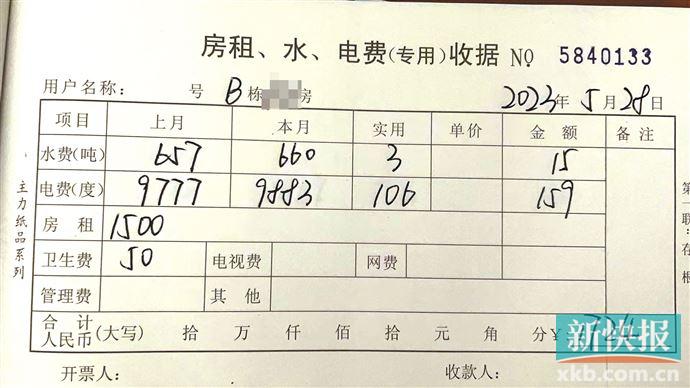 房租、水、电费(专用)收据 NO 5840133
用户名称: 号 B 栋 房 2023年 5月28日
项目 上月 本月 实用 单价 金额 备注
水费(吨) 657 660 3 15
电费(度) 9777 9883 106 159
房租 1500
卫生费 50 电视费 网费
管理费 其他
合计人民币 (大写) 拾 万 仟 佰 拾 元 角 分¥
开票人: 收款人:
主力纸品系列
第一联:存根
新快报
xkb.com.cn